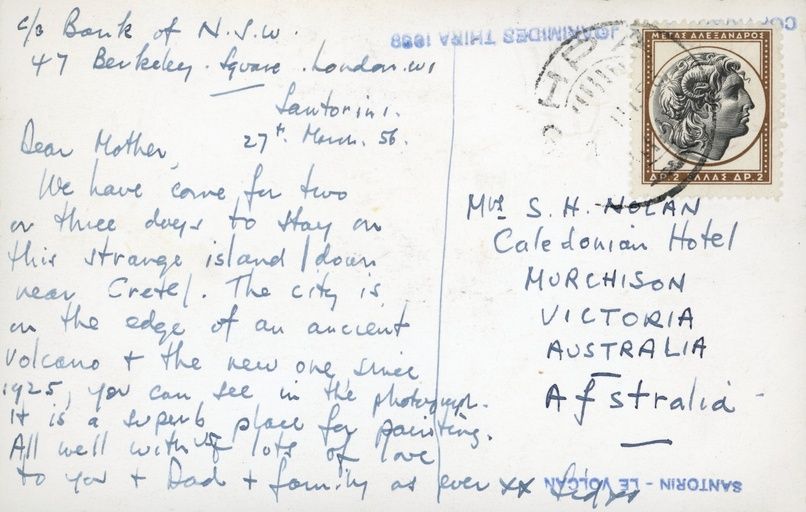 c/o Bank of N.S.W.
47 Berkeley Square London W1
Santorini.
27th March. 56.
Dear Mother,
We have come for two
or three days to stay on
this strange island /down
near Crete/. The city is
on the edge of an ancient
volcano + the new one, since
1925, you can see in the photograph.
It is a superb place for painting.
All well with us lots of love
to you + Dad + family as ever xx
JOARIMIDES THIRA 1938
ΜΕΓΑΣ ΑΛΕΞΑΝΔΡΟΣ
ΔΡ. 2 ΕΛΛΑΣ ΔΡ. 2
Mrs S. H. NOLAN
Caledonian Hotel
MURCHISON
VICTORIA
AUSTRALIA
Afstralia
SANTORIN - LE VOLCAN